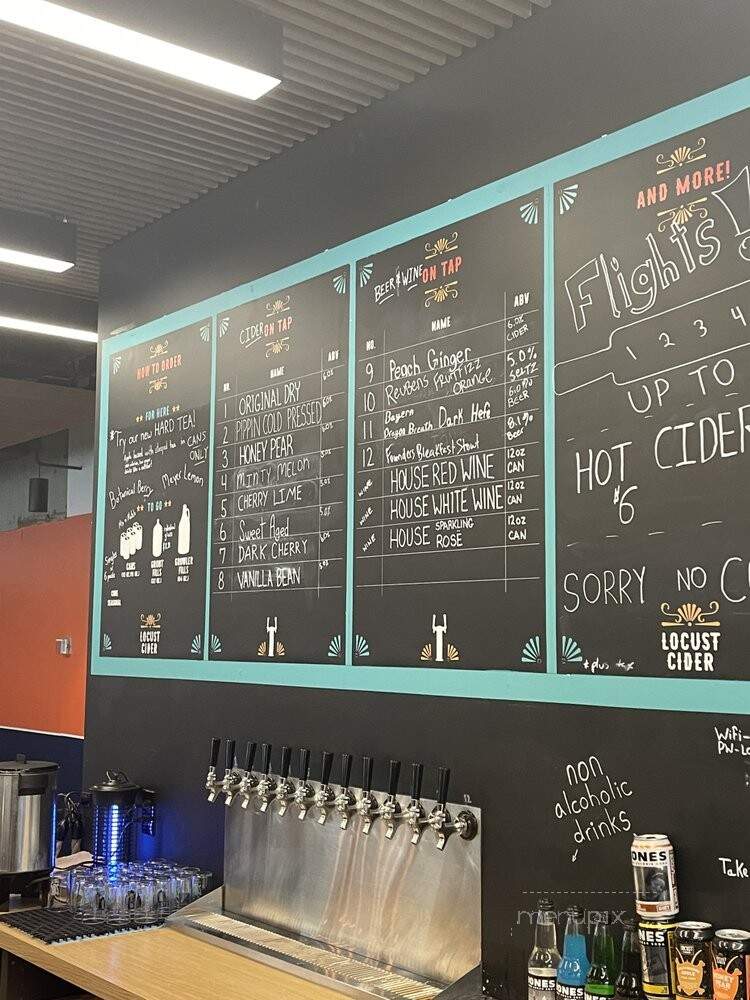 HOW TO ORDER
FOR HERE
*Try our new HARD TEA!
in CANS
ONLY
Botanical Berry
Meyer Lemon
TO GO
Singles
CANS
GROWLER
FILLS
CIDER ON TAP
NO. NAME ABV
1 ORIGINAL DRY
2 PIPPIN COLD PRESSED
3 HONEY PEAR
4 MINTY MELON
5 CHERRY LIME
6 Sweet Aged
7 DARK CHERRY
8 VANILLA BEAN
BEER & WINE ON TAP
NO. NAME ABV
9 Peach Ginger CIDER
10 Reubens FRUITIZZ ORANGE 5.0% SELTZ
11 Bayern Dragon Breath Dark Hefe BEER
12 Founders Breakfast Stout 8.1% Beer
WINE HOUSE RED WINE 12oz CAN
WINE HOUSE WHITE WINE 12oz CAN
WINE HOUSE SPARKLING ROSE 12oz CAN
AND MORE!
Flights!
1 2 3 4
UP TO
HOT CIDER
$6
SORRY NO
*plus tax
LOCUST
CIDER
LOCUST
CIDER
Wifi-
non
alcoholic
drinks
Take
ONES
menupix